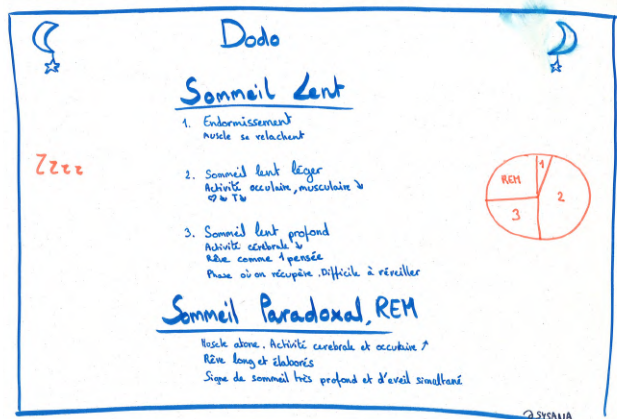 Dodo
Sommeil Lent
1. Endormissement
Muscle se relachent
Zzzz
2. Sommeil lent léger
Activité occulaire, musculaire ↘
♡↘ T↘
REM
1
2
3
3. Sommeil lent profond
Activité cérébrale ↘
Rêve comme 1 pensée
Phase où on récupère. Difficile à réveiller
Sommeil Paradoxal, REM
Muscle atone. Activité cerebrale et occulaire ↗
Rêve long et élaborés
Signe de sommeil très profond et d'eveil simultané
SYSANA